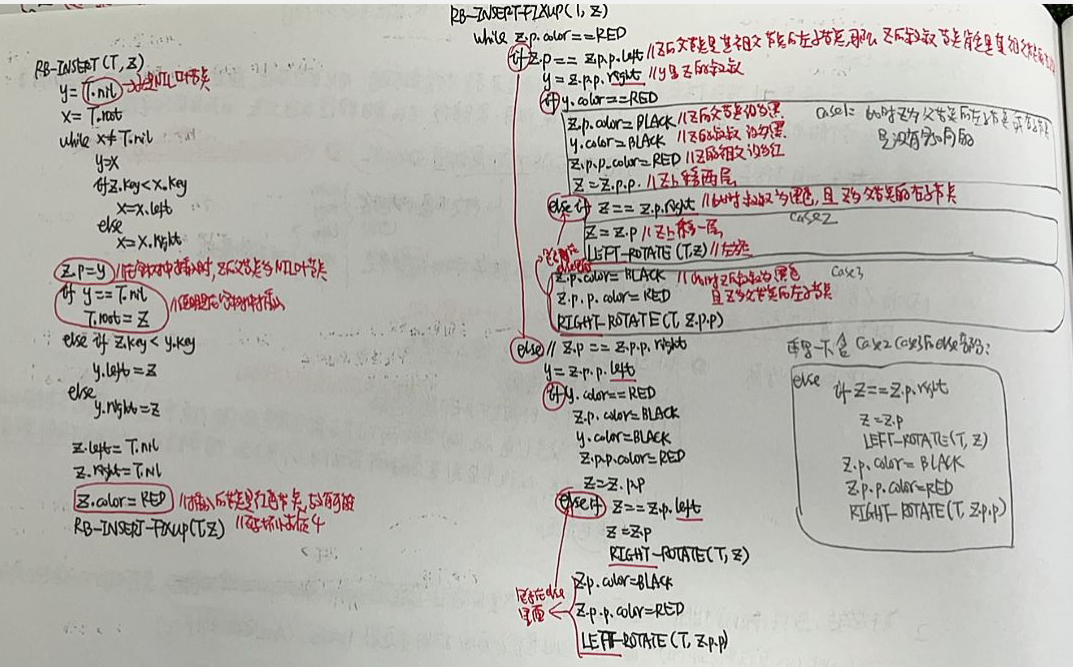 RB-INSERT(T, Z)
y = T.nil //这是NIL叶节点
x = T.root
while x ≠ T.nil
y=x
if z.key < x.key
x=x.left
else
x=x.right
z.p=y //在空树中插入时, z的父节点为NIL叶节点
if y == T.nil
T.root = Z
else if z.key < y.key
y.left = z
else
y.right = z
z.left = T.nil
z.right = T.nil
z.color = RED
RB-INSERT-FIXUP(T, Z)
RB-INSERT-FIXUP(T, Z)
while z.p.color == RED
if z.p == z.p.p.left //z的父节点是其祖父节点的左子节点,那么
y = z.p.p.right //y是z的叔叔
if y.color == RED
z.p.color = BLACK //z的父节点设为黑
y.color = BLACK //z的叔叔设为黑
z.p.p.color = RED //z的祖父设为红
z = z.p.p. //z上移两层
case1: 此时z为父节点的左子节点或右子节点
是没有影响的
else if z == z.p.right //此时叔叔为黑色, 且z为父节点的右子节点
case2
z = z.p //z上移一层
LEFT-ROTATE (T,z) //左旋
z.p.color = BLACK //此时z的叔叔为黑色
且z为父节点的左子节点
case3
z.p.p.color = RED
RIGHT-ROTATE(T, z.p.p)
else // z.p == z.p.p.right
y = z.p.p.left
if y.color == RED
z.p.color = BLACK
y.color = BLACK
z.p.p.color = RED
z = z.p.p
else if z == z.p.left
z = z.p
RIGHT-ROTATE(T, z)
z.p.color = BLACK
z.p.p.color = RED
LEFT-ROTATE(T, z.p.p)
包在else
里面
再写一下含 case2 case3的else部分:
else if z == z.p.right
z = z.p
LEFT-ROTATE(T, z)
z.p.color = BLACK
z.p.p.color = RED
RIGHT-ROTATE(T, z.p.p)